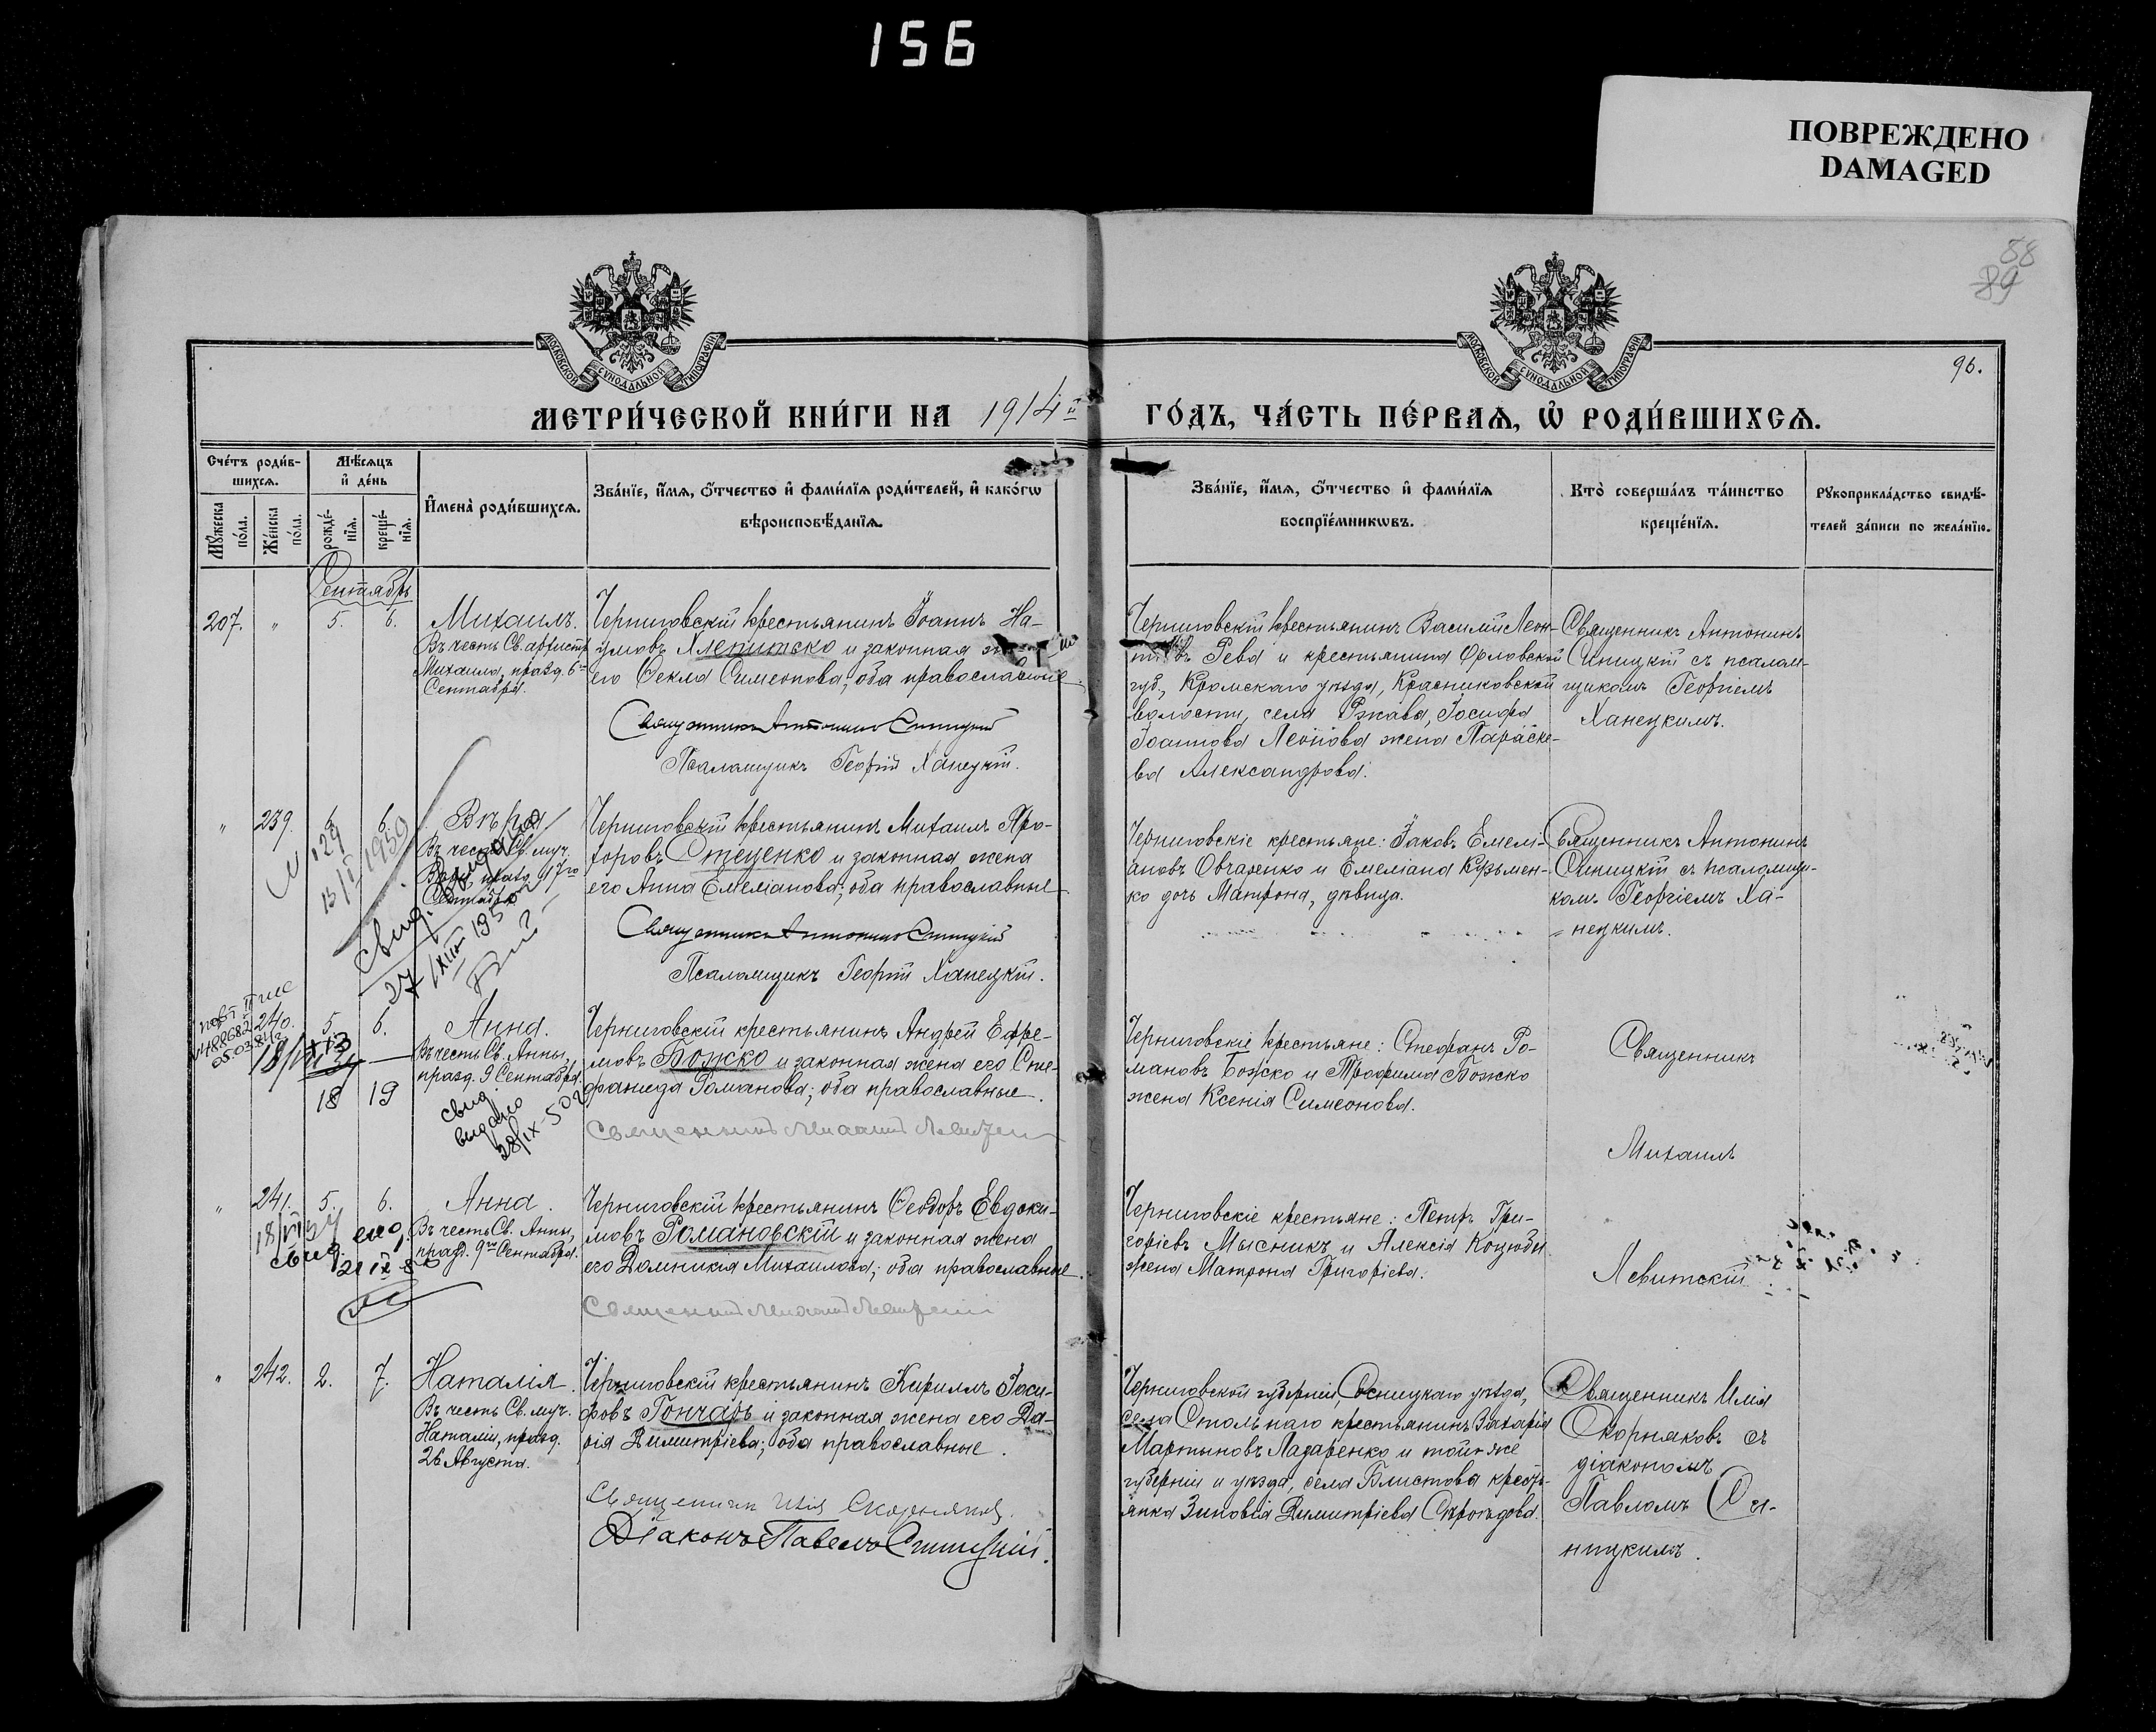 156
ПОВРЕЖДЕНО
DAMAGED
58
89
96.
МОСКОВСКОЙ СѴНОДАЛЬНОЙ ТИПОГРАФІИ
МОСКОВСКОЙ СѴНОДАЛЬНОЙ ТИПОГРАФІИ
МЕТРИ́ЧЕСКОЙ КНИ́ГИ НА 1914й ГО́ДЪ, ЧА́СТЬ ПЕ́РВАѦ, Ѡ҆ РОДИ́ВШИХСѦ.
Сче́тъ роди́в-
шихсѧ.
Мꙋжеска
по́ла.
Же́нска
по́ла.
Мѣ́сѧцъ
и҆ де́нь
рожде́-
нїѧ.
креще́-
нїѧ.
И҆мена̀ роди́вшихсѧ.
Зва́нїе, и҆́мѧ, ѻ҆́тчество и҆ фами́лїѧ роди́телей, и҆ како́гѡ
вѣроисповѣ́данїѧ.
Зва́нїе, и҆́мѧ, ѻ҆́тчество и҆ фами́лїѧ
воспрїе́мникѡвъ.
Кто̀ соверша́лъ та́инство
креще́нїѧ.
Рꙋкоприкла́дство свидѣ́-
телей за́писи по жела́нїю.
Сентябрь
207. " 5. 6.
Михаилъ.
Въ честь Св. архистр.
Михаила, празд. 6го
Сентября.
Черниговскій крестьянинъ Іоаннъ На-
умовъ Хлепитько и законная
его Ѳекла Симеонова; оба православные.
Священникъ Антонинъ Синицкій
Псаломщикъ Георгій Ханецкій.
Черниговскій крестьянинъ Василій Леон-
Рева и крестьянина Орловской
губ., Кромскаго уѣзда, Красниковской
волости, села Ржава, Іосифа
Іоаннова Леонова жена Параске-
ва Александрова.
Священникъ Антонинъ
Синицкій съ псалом-
щикомъ Георгіемъ
Ханецкимъ.
" 239. 6.
Вѣра
Въ честь Св. муч.
празд. 17го
Сентября
129
13/I 1959
свид.
27/XIII 195
Черниговскій крестьянинъ Михаилъ Про-
хоровъ Стеценко и законная жена
его Анна Емеліанова; оба православные
Священникъ Антонинъ Синицкій
Псаломщикъ Георгій Ханецкій.
Черниговскіе крестьяне: Іаковъ Емелі-
ановъ Овчаренко и Емеліана Кузьмен-
ко дочь Матрона, дѣвица.
Священникъ Антонинъ
Синицкій съ псаломщи-
комъ Георгіемъ Ха-
нецкимъ.
240. 5. 6.
+13
18 19
Анна.
Въ честь Св. Анны,
празд. 9 Сентября.
свид.
выдано
28/IX-50
Черниговскій крестьянинъ Андрей Ефре-
мовъ Божко и законная жена его Сте-
фанида Романова; оба православные.
Священникъ Михаилъ Левитскій
Черниговскіе крестьяне: Стефанъ Ро-
мановъ Божко и Трофима Божко
жена Ксенія Симеонова.
Священникъ
Михаилъ
Левитскій
" 241. 5. 6.
свид.
21 IX
Анна.
Въ честь Св. Анны,
празд. 9го Сентября.
Черниговскій крестьянинъ Ѳеодоръ Евдоки-
мовъ Романовскій и законная жена
его Домникія Михаилова; оба православные.
Священникъ Михаилъ Левитскій
Черниговскіе крестьяне: Петръ Гри-
горіевъ Мысникъ и Алексія Коцюбы
жена Матрона Григоріева.
" 242. 2. 7.
Наталія.
Въ честь Св. муч.
Наталіи, празд.
26 Августа.
Черниговскій крестьянинъ Кириллъ Іоси-
фовъ Гончаръ и законная жена его Да-
рія Димитріева; оба православные.
Священникъ Илія Скорняковъ.
Діаконъ Павелъ Синицкій.
Черниговской губерніи, Сосницкаго уѣзда,
села Стольнаго крестьянинъ Захарія
Мартыновъ Лазаренко и той-же
губерніи и уѣзда, села Блистова кресть-
янка Зиновія Димитріева
Священникъ Илія
Скорняковъ съ
діакономъ
Павломъ Си-
ницкимъ.